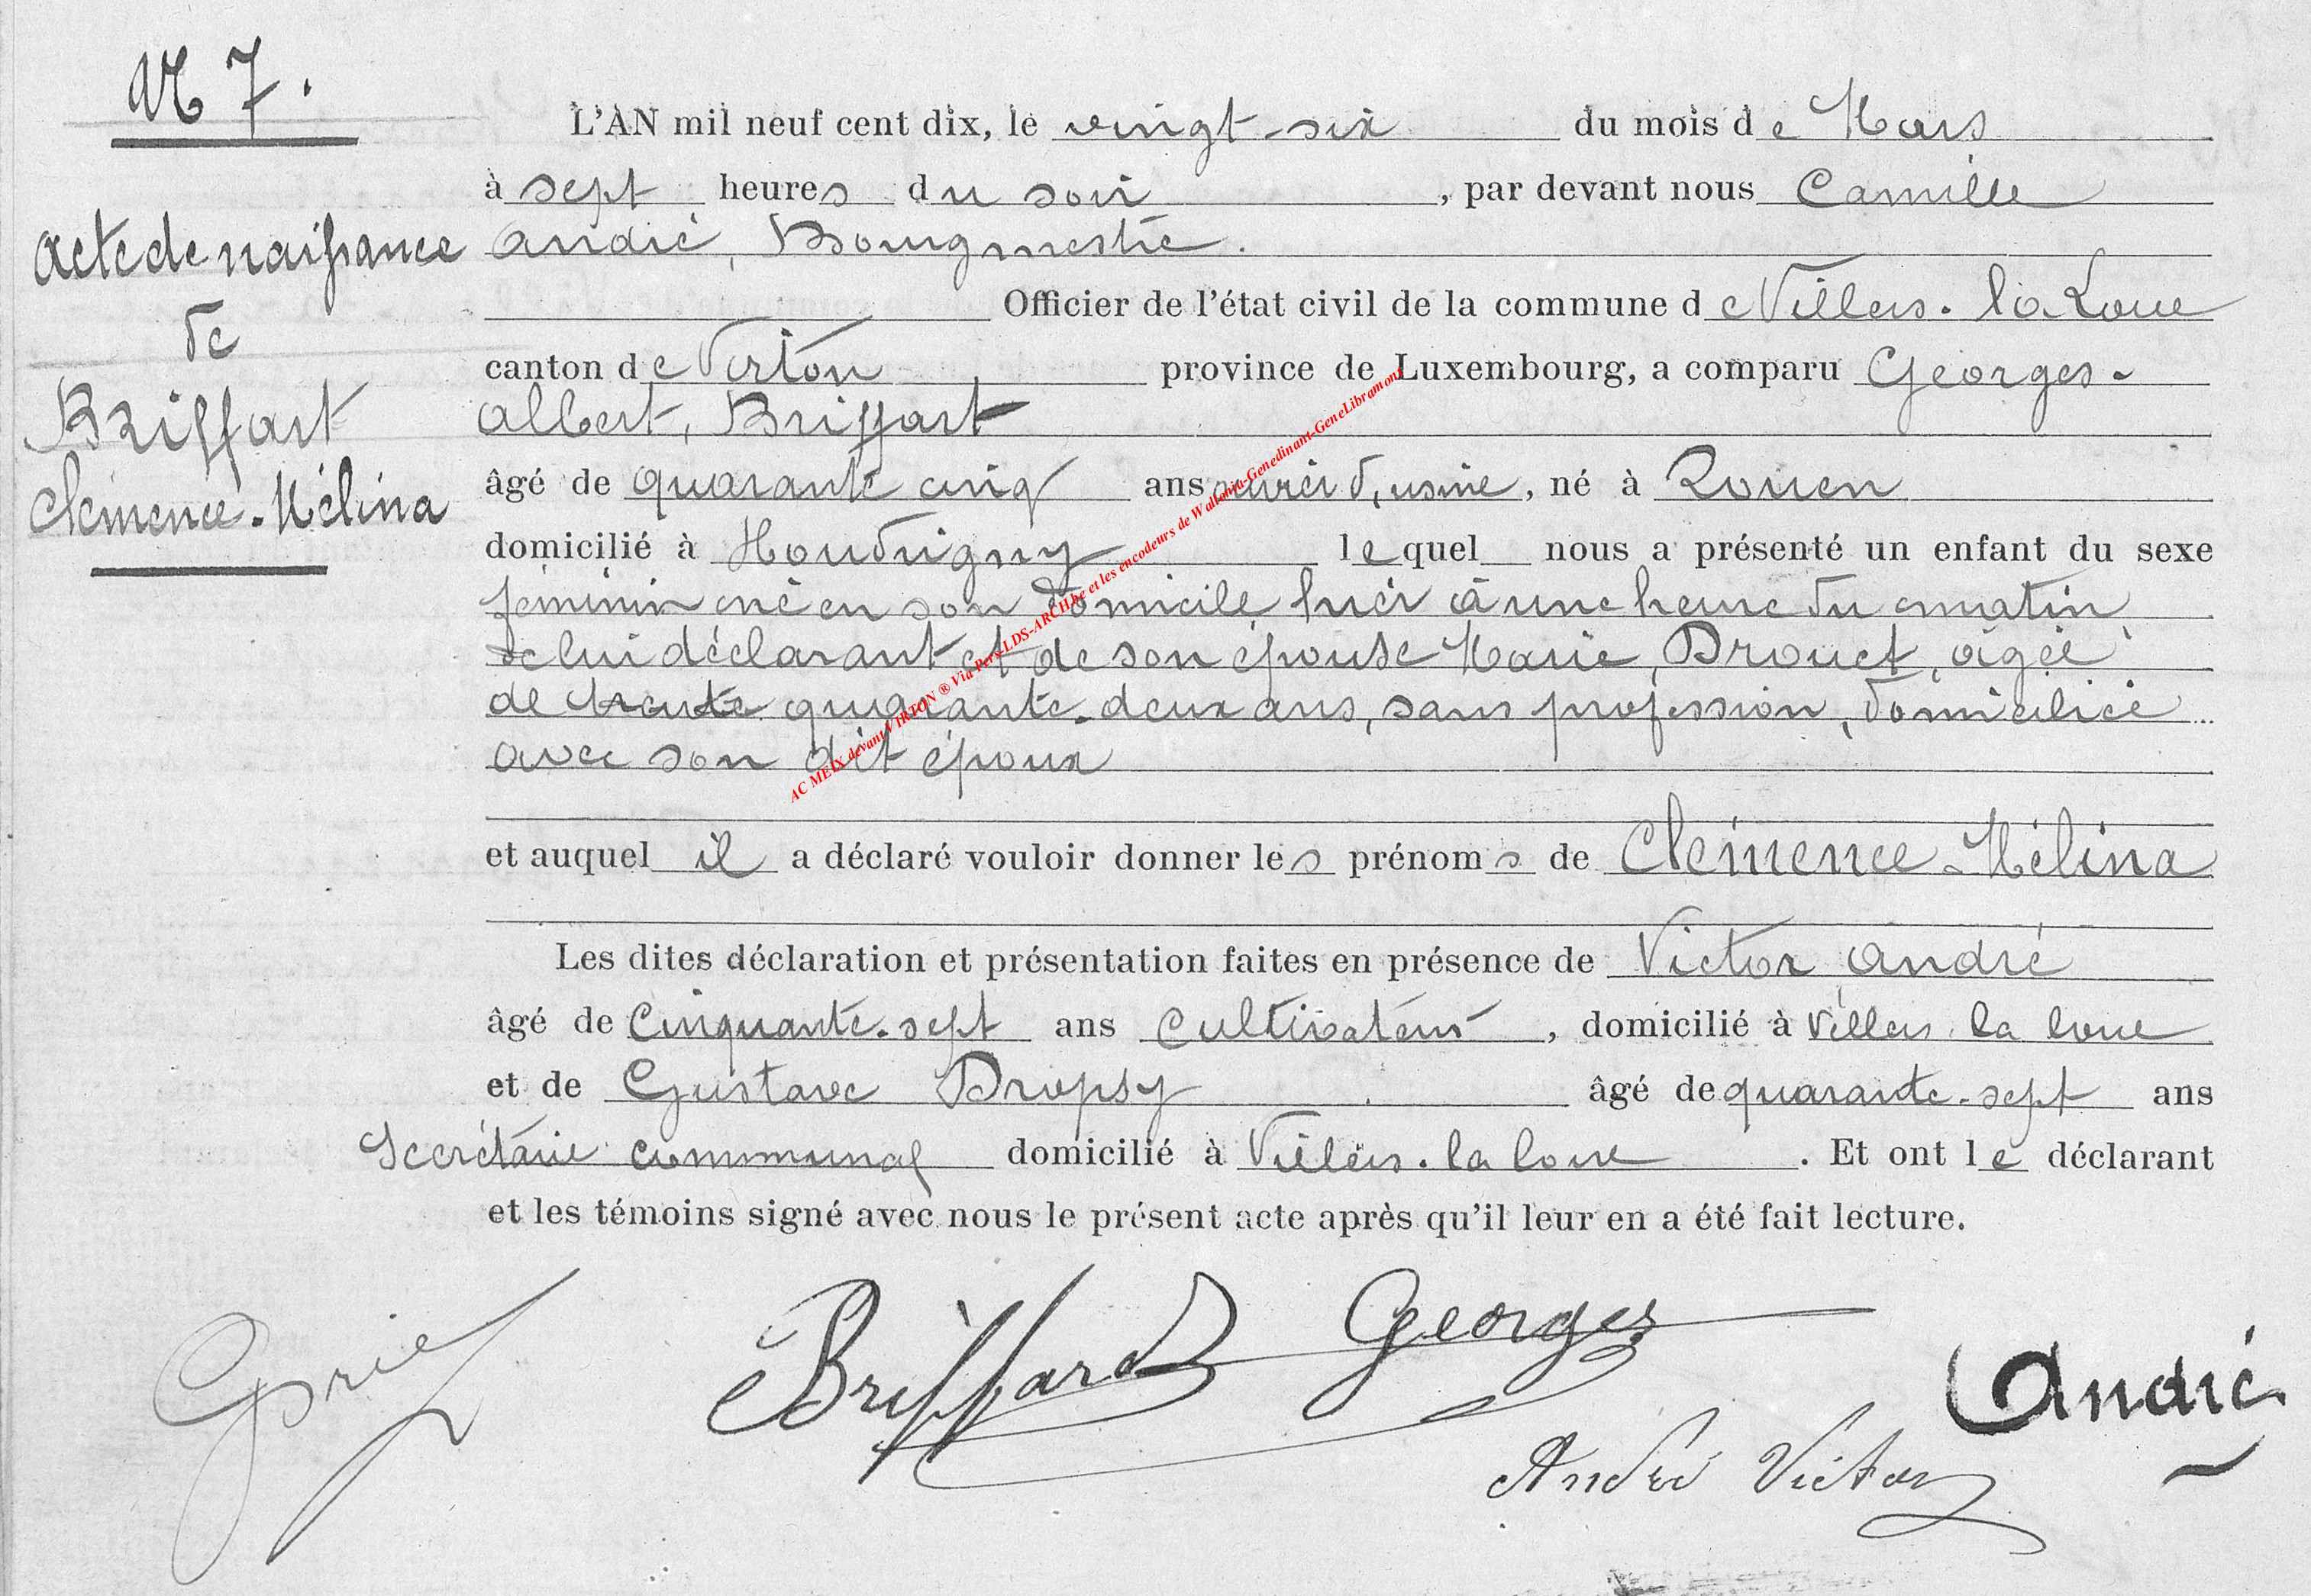 N° 7.
Acte de naissance
de
Briffart
Clémence-Mélina
L'AN mil neuf cent dix, le vingt-six du mois de Mars
à sept heures du soir, par devant nous Camille
André, Bourgmestre.
Officier de l'état civil de la commune de Villers-la-Loue
canton de Virton province de Luxembourg, a comparu Georges-
Albert, Briffart
âgé de quarante cinq ans ouvrier d'usine, né à Rouen
domicilié à Houdrigny lequel nous a présenté un enfant du sexe
féminin né en son domicile hier à une heure du matin
de lui déclarant et de son épouse Marie, Drouet, âgée
de trente quarante-deux ans, sans profession, domiciliée
avec son dit époux
et auquel il a déclaré vouloir donner les prénoms de Clémence-Mélina
Les dites déclaration et présentation faites en présence de Victor André
âgé de cinquante-sept ans cultivateur, domicilié à Villers-la-loue
et de Gustave Dropsy âgé de quarante-sept ans
Secrétaire communal domicilié à Villers-la-loue. Et ont le déclarant
et les témoins signé avec nous le présent acte après qu'il leur en a été fait lecture.
Briffard Georges
André
André Victor
AC MEIX devant VIRTON ® Via Pers-LDS-ARCHbe et les encodeurs de Wallonia-Genedinant-GeneLibramont